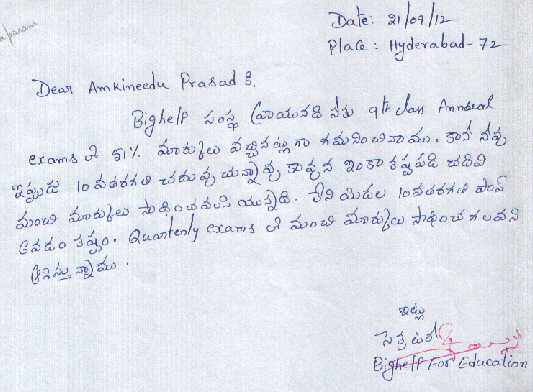 Date: 21/09/12
Place: Hyderabad-72
Dear Amkineedu Prasad K,
Bighelp సంస్థ వ్రాయునది నీకు 9th class Annual
exams లో 51% మార్కులు వచ్చినట్లుగా గమనించినాము. కాని నీవు
ఇప్పుడు 10వతరగతి చదువు చున్నావు కావున ఇంకా కష్టపడి చదివి
మంచి మార్కులు సాధించవలసి యున్నది. లేని యెడల 10వతరగతి పాస్
అవడం కష్టం. Quarterly exams లో మంచి మార్కులు సాధించ గలవని
ఆశిస్తున్నాము.
ఇట్లు
Bighelp For Education